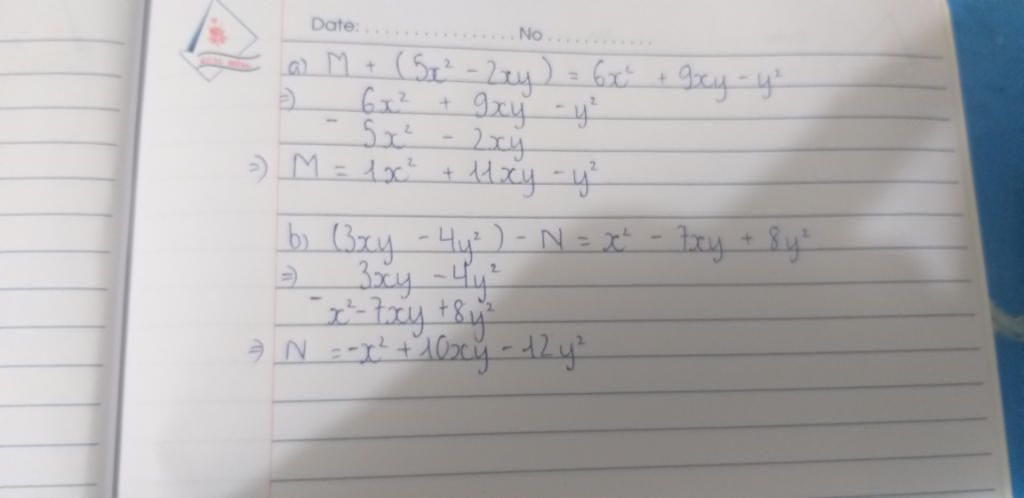 Date:..................No............
a) M + (5x² - 2xy) = 6x² + 9xy - y²
=) 6x² + 9xy - y²
- 5x² - 2xy
=) M = 1x² + 11xy - y²
b) (3xy - 4y²) - N = x² - 7xy + 8y²
=) 3xy - 4y²
- x² - 7xy + 8y²
=) N = -x² + 10xy - 12y²